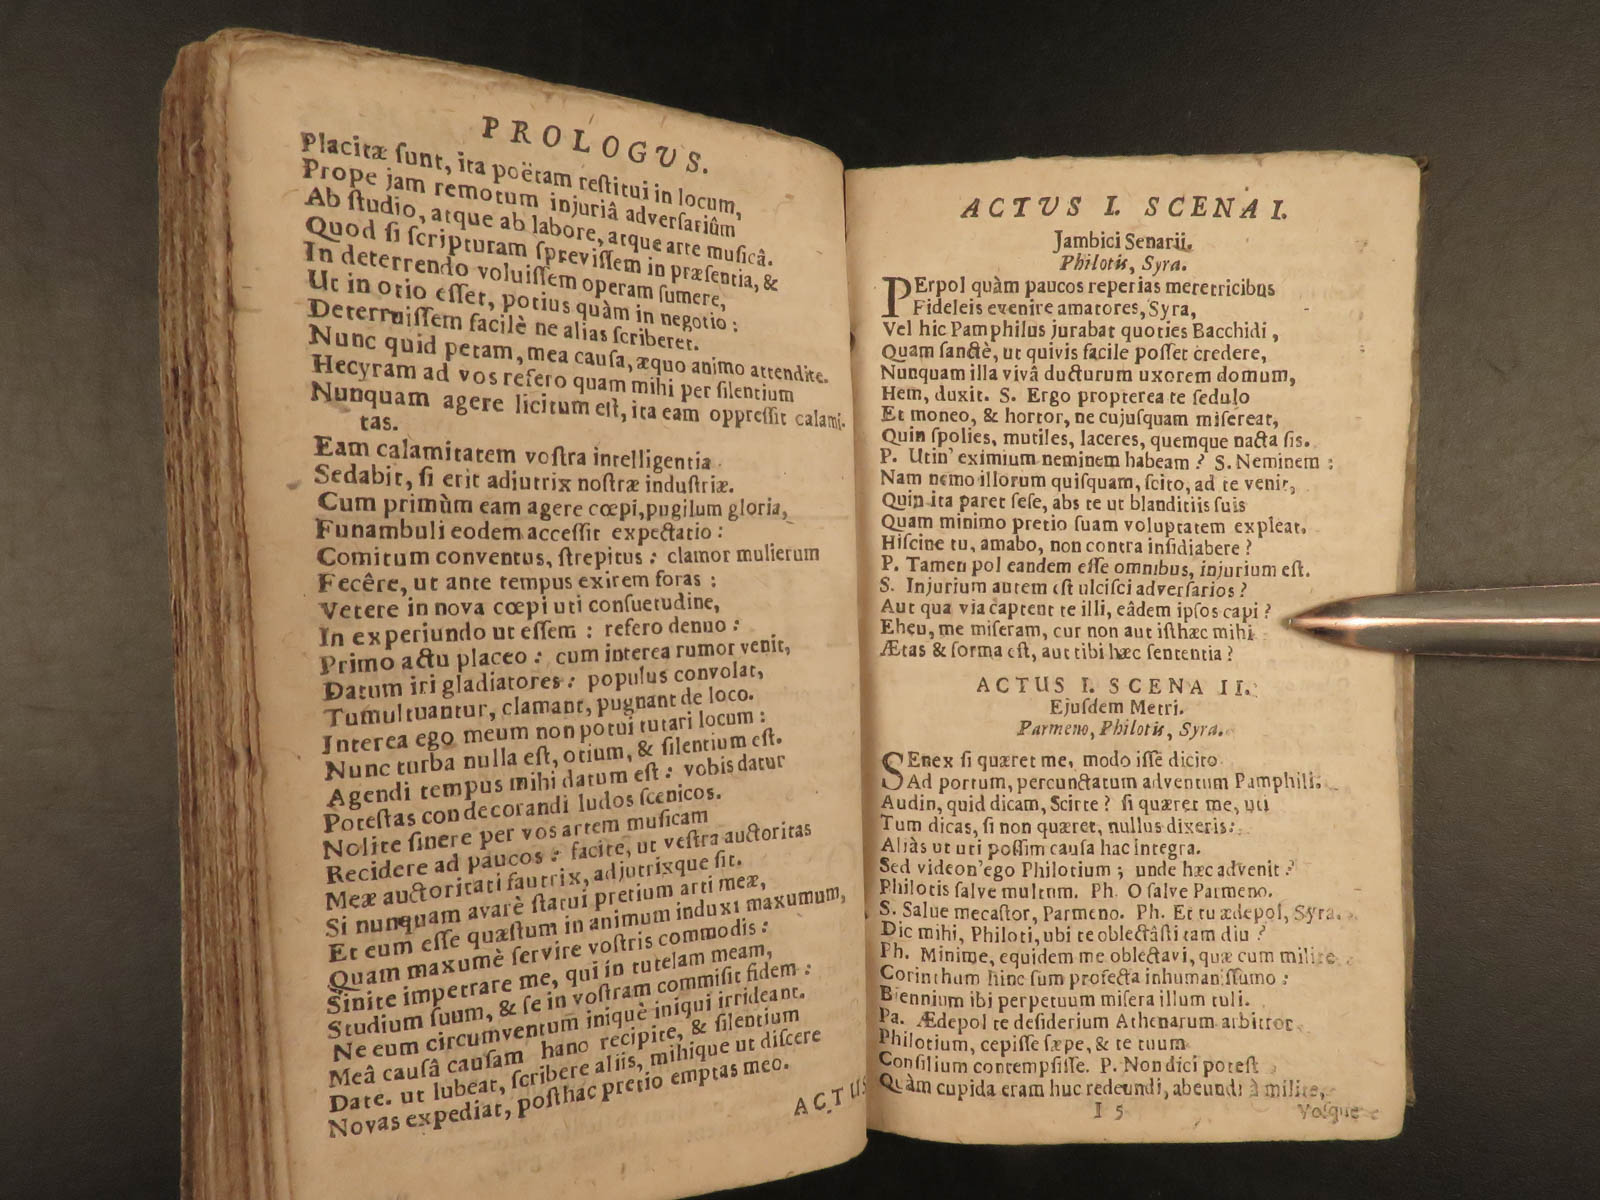 PROLOGUS.
Placitæ ſunt, ita poëtam reſtitui in locum,
Prope jam remotum injuriâ adverſariûm
Ab ſtudio, atque ab labore, atque arte muſicâ.
Quod ſi ſcripturam ſpreviſſem in præſentia, &
In deterrendo voluiſſem operam ſumere,
Ut in otio eſſet, potius quàm in negotio :
Deterruiſſem facilè ne alias ſcriberet.
Nunc quid petam, mea cauſa, æquo animo attendite.
Hecyram ad vos refero quam mihi per ſilentium
Nunquam agere licitum eſt, ita eam oppreſſit calami-
tas.
Eam calamitatem voſtra intelligentia
Sedabit, ſi erit adjutrix noſtræ induſtriæ.
Cum primùm eam agere cœpi, pugilum gloria,
Funambuli eodem acceſſit expectatio :
Comitum conventus, ſtrepitus : clamor mulierum
Fecêre, ut ante tempus exirem foras :
Vetere in nova cœpi uti conſuetudine,
In experiundo ut eſſem : refero denuo :
Primo actu placeo : cum interea rumor venit,
Datum iri gladiatores : populus convolat,
Tumultuantur, clamant, pugnant de loco.
Interea ego meum non potui tutari locum :
Nunc turba nulla eſt, otium, & ſilentium eſt.
Agendi tempus mihi datum eſt : vobis datur
Poteſtas condecorandi ludos ſcenicos.
Nolite ſinere per vos artem muſicam
Recidere ad paucos : facite, ut veſtra auctoritas
Meæ auctoritati fautrix, adjutrixque ſit.
Si nunquam avarè ſtatui pretium arti meæ,
Et eum eſſe quæſtum in animum induxi maxumum,
Quam maxumè ſervire voſtris commodis :
Sinite impetrare me, qui in tutelam meam,
Studium ſuum, & ſe in voſtram commiſit fidem :
Ne eum circumventum iniquè iniqui irrideant.
Meâ cauſâ cauſam hano recipite, & ſilentium
Date. ut lubeat, ſcribere aliis, mihique ut diſcere
Novas expediat, poſthac pretio emptas meo.
ACTUS
ACTVS I. SCENA I.
Jambici Senarii.
Philotis, Syra.
PErpol quàm paucos reperias meretricibus
Fideleis evenire amatores, Syra,
Vel hic Pamphilus jurabat quoties Bacchidi,
Quam ſanctè, ut quivis facile poſſet credere,
Nunquam illa vivâ ducturum uxorem domum,
Hem, duxit. S. Ergo propterea te ſedulo
Et moneo, & hortor, ne cujuſquam miſereat,
Quin ſpolies, mutiles, laceres, quemque nacta ſis.
P. Utin' eximium neminem habeam ? S. Neminem :
Nam nemo illorum quiſquam, ſcito, ad te venit,
Quin ita paret ſeſe, abs te ut blanditiis ſuis
Quam minimo pretio ſuam voluptatem expleat.
Hiſcine tu, amabo, non contra inſidiabere ?
P. Tamen pol eandem eſſe omnibus, injurium eſt.
S. Injurium autem eſt ulciſci adverſarios ?
Aut qua via captent te illi, eâdem ipſos capi ?
Eheu, me miſeram, cur non aut iſthæc mihi
Ætas & forma eſt, aut tibi hæc ſententia ?
ACTUS I. SCENA II.
Ejuſdem Metri.
Parmeno, Philotis, Syra.
SEnex ſi quæret me, modo iſſe dicito
Ad portum, percunctatum adventum Pamphili.
Audin, quid dicam, Scirte ? ſi quæret me, uti
Tum dicas, ſi non quæret, nullus dixeris :
Aliàs ut uti poſſim cauſa hac integra.
Sed videon' ego Philotium ; unde hæc advenit ?
Philotis ſalve multum. Ph. O ſalve Parmeno.
S. Salue mecaſtor, Parmeno. Ph. Et tu ædepol, Syra.
Dic mihi, Philoti, ubi te oblectâſti tam diu ?
Ph. Minime, equidem me oblectavi, quæ cum milite
Corinthum hinc ſum profecta inhumaniſſumo :
Biennium ibi perpetuum miſera illum tuli.
Pa. Ædepol te deſiderium Athenarum arbitror
Philotium, cepiſſe ſæpe, & te tuum
Conſilium contempſiſſe. P. Non dici poteſt
Quàm cupida eram huc redeundi, abeundi à milite,
I 5
Voſque